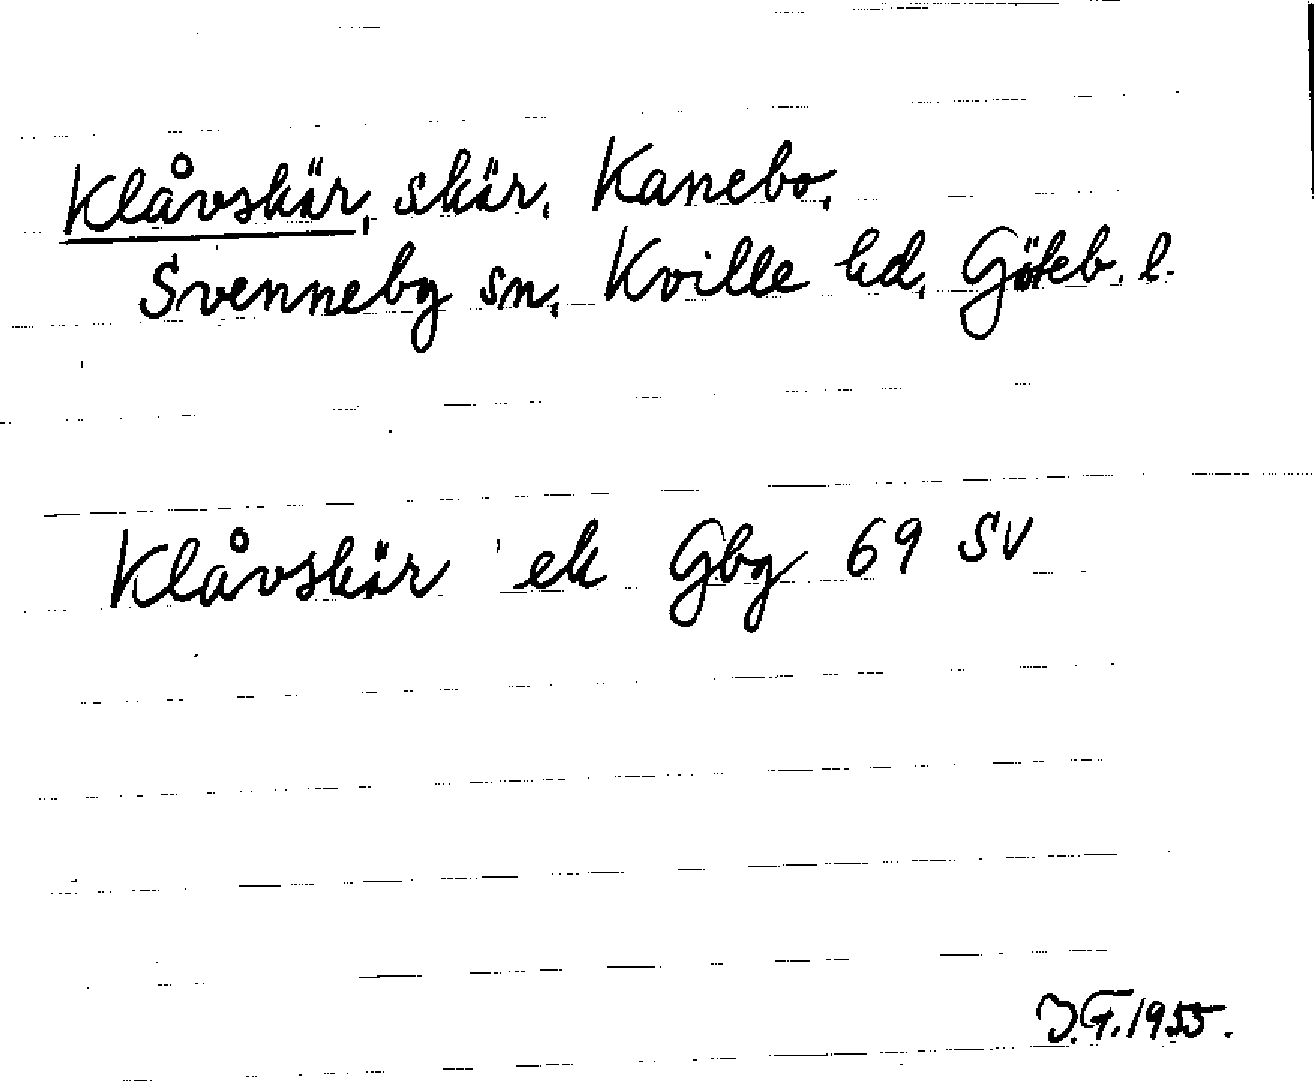 Klåvskär, skär, Kanebo,
Svenneby sn, Kville hd, Göteb. l.
Klåvskär ek Gbg 69 SV
J.G.1955.